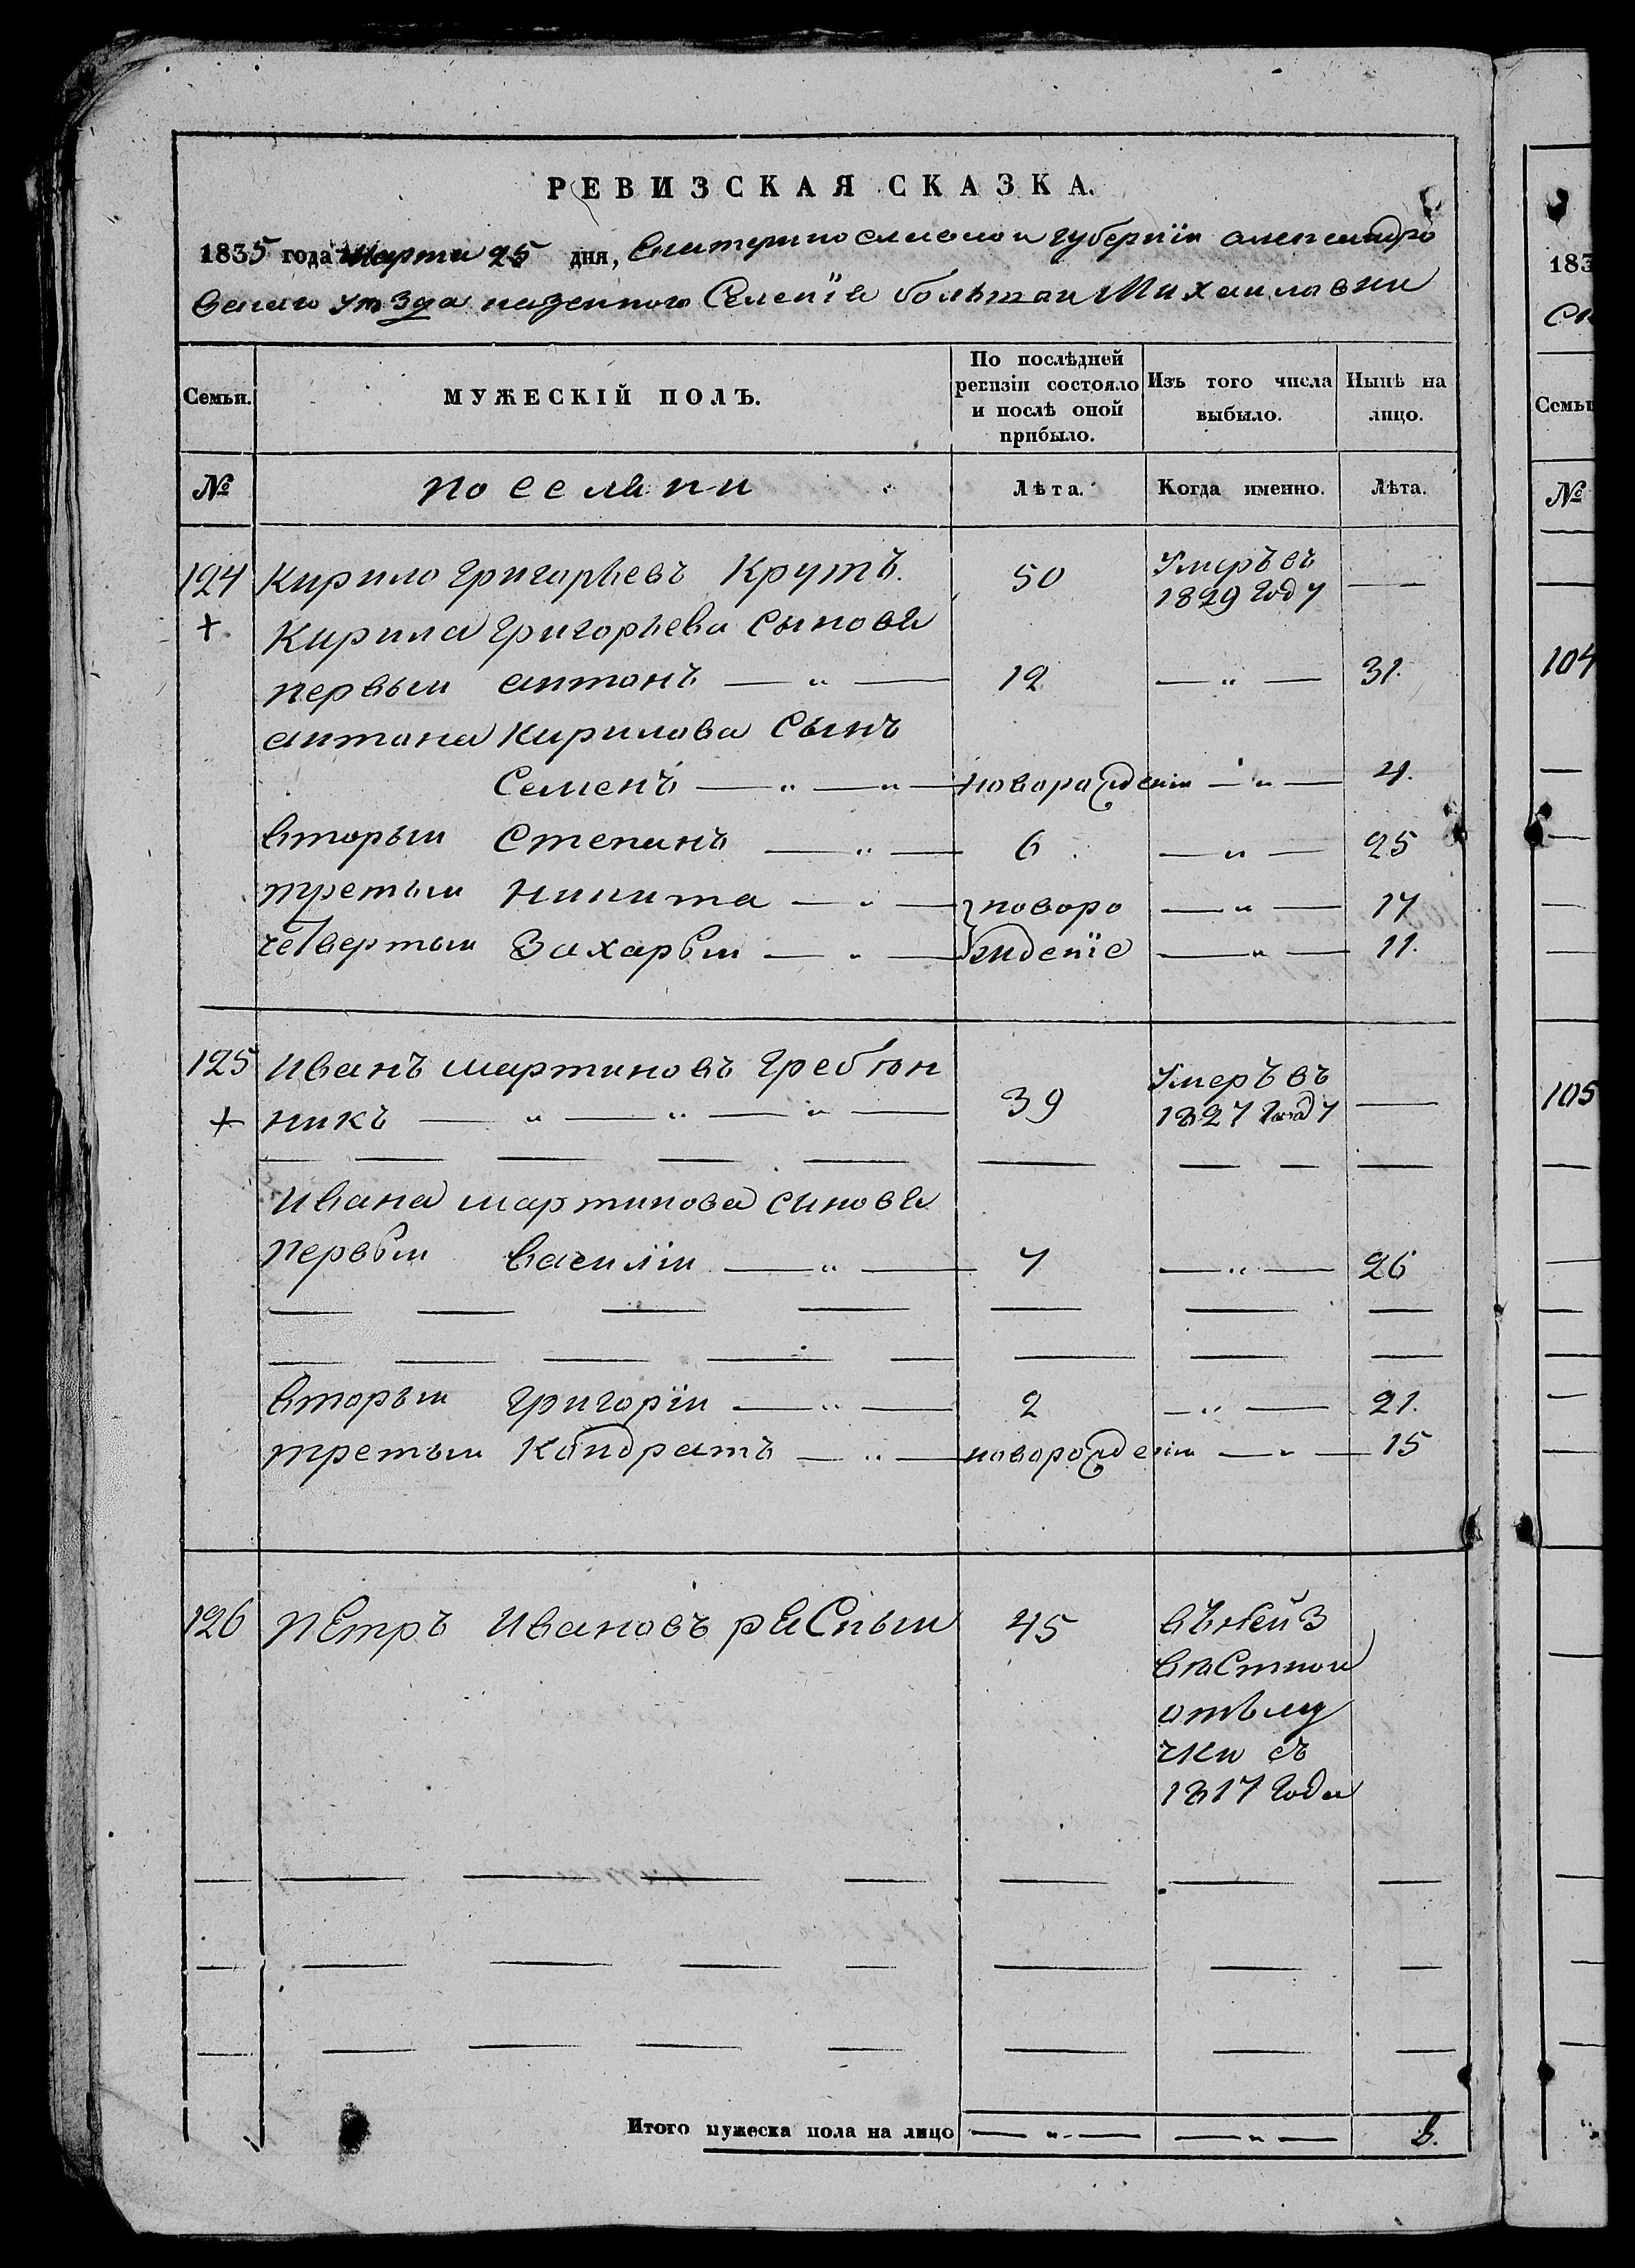 РЕВИЗСКАЯ СКАЗКА.
1835 года Марта 25 дня, Екатеринославской губерніи александро
вскаго уезда казенного Селенія большой Михаиловки
Семьи. МУЖЕСКІЙ ПОЛЪ. По послѣдней ревизіи состояло и послѣ оной прибыло. Изъ того числа выбыло. Нынѣ на лицо.
№ поселяни Лѣта. Когда именно. Лѣта.
124 Кирило Григорьевъ Крутъ. 50 Умеръ въ 1829 Году —
+ Кирила Григорьева Сынове
первыи антонъ — " — 12 — " — 31.
антона Кирилова Сынъ
Семенъ — " — " — новорожденіи — " — 4.
вторыи Степанъ — " — 6. — " — 25
третыи Никита — " — новоро — " — 17
четвертыи Захарыи — " — жденіе — " — 11.
125 Иванъ мартиновъ Гребюн
+ никъ — " — " — " — 39 Умеръ въ 1827 Году —
Ивана мартинова синове
первыи василіи — " — 7 — " — 26
вторыи Григоріи — " — 2 — " — 21.
третыи Кондратъ — " — новорожденіи — " — 15
126 пЕтръ Ивановъ раСпыи 45 въ Ней З
вѣСтнои
отълу
чки съ
1817 Года
Итого мужеска пола на лицо — " — — " — 8.
183
№
104
105